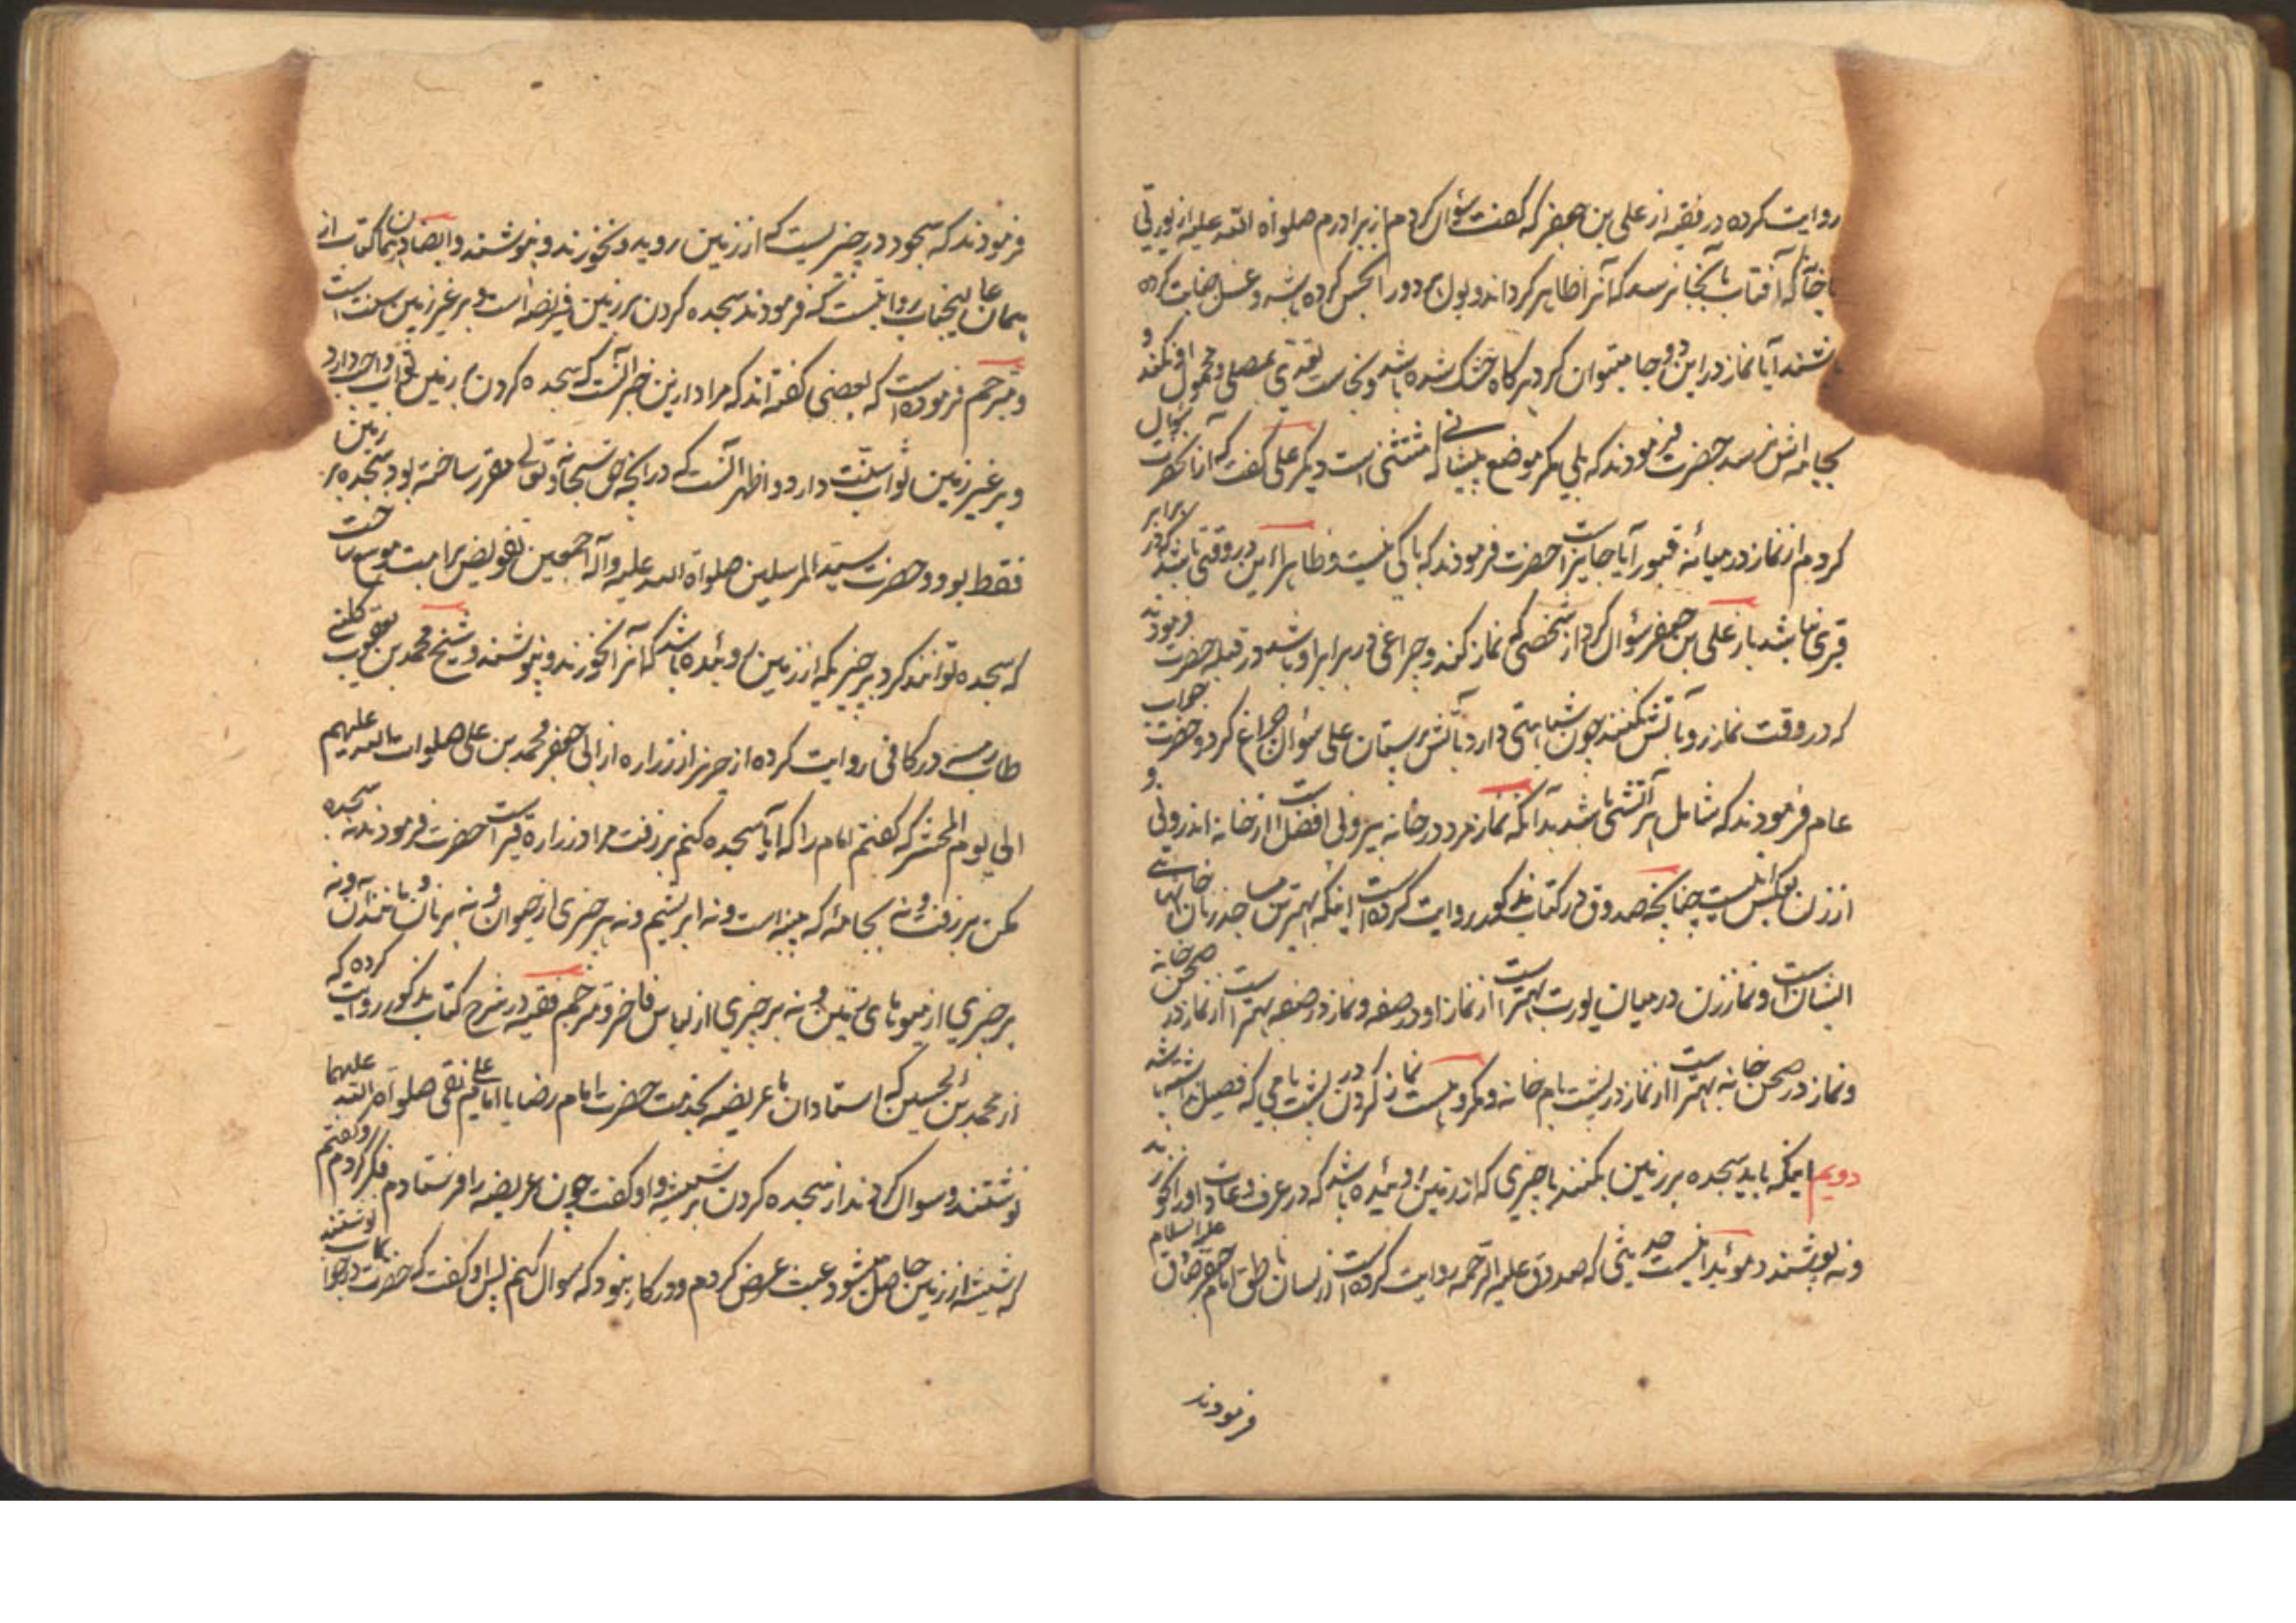 روایت کرده در فقیه از علی بن جعفر که گفت سؤال کردم از برادرم صلواة الله علیه از بوریائی
خانه که آفتاب بآنجا نرسد که آنرا طاهر گرداند و بول دور انجس کرده باشد و غسل جنابت کرده
باشند آیا نماز در این دو جا میتوان کرد هرگاه خشک شده باشد و نجاست تعدی بمصلی و محمول او نکند و
بجامه اش نرسد حضرت فرمودند که بلی مگر موضع پیشانی که مستثنی است دیگر علی گفت که از آنحضرت سؤال
کردم از نماز در میانه قبور آیا جایز است حضرت فرمودند که باکی نیست و ظاهرا این در وقتی باشد که در برابر
قبری نباشد باز علی بن جعفر سؤال کرد از شخصی که نماز کند و چراغی در برابر او باشد در قبله حضرت فرمودند
که در وقت نماز رو بآتش نکنند چون شباهتی دارد بآتش پرستان علی سؤال از چراغ کرد و حضرت جواب
عام فرمودند که شامل هر آتشی باشد بدانکه نماز مرد در خانه بیرونی افضل است از خانه اندرونی و
از زن بعکس اینست چنانچه صدوق در کتاب مذکور روایت کرده است اینکه بهترین مساجد زنان خانهای
ایشان است و نماز زن در میان بیوت بهتر است از نماز او در صفه و نماز در صفه بهتر است از نماز در صحن خانه
و نماز در صحن خانه بهتر است از نماز در پشت بام خانه و مکروهست نماز کردن در پشت بامی که فصیل نداشته باشد
دویم اینکه باید سجده بر زمین بکنند یا چیزی که از زمین روئیده باشد که در عرف و عادت او را نخورند
و نه پوشند و مؤید اینست حدیثی که صدوق علیه الرحمه روایت کرده است از لسان ناطق امام جعفر صادق علیه السلام
فرمودند
فرمودند که سجود در چیزیست که از زمین روید و نخورند و نپوشند و ایضا در همان کتاب از
همان عالیجناب روایتست که فرمودند سجده کردن بر زمین فریضه است و بر غیر زمین سنت است
و مترجم فرموده است که بعضی گفته اند که مراد از این خبر آنست که سجده کردن بر زمین ثواب واجب دارد
و بر غیر زمین ثواب سنت دارد و اظهر آنست که در آنچه حق سبحانه و تعالی مقرر ساخته بود سجده بر زمین
فقط بود و حضرت سید المرسلین صلواة الله علیه و آله اجمعین تفویض بر امت موسع ساخت
که سجده توانند کرد بر چیزیکه از زمین روئیده باشد که آنرا نخورند و نپوشند و شیخ محمد بن یعقوب کلینی
طاب رمسه در کافی روایت کرده از حریز از زراره از ابی جعفر محمد بن علی صلوات الله علیهم
الی یوم المحشر که گفتم امام را که آیا سجده کنم بر زفت مراد زراره قیر است حضرت فرمودند نه سجده
مکن بر زفت و نه بجامهٔ که پنبه است و نه ابریشم و نه بر چیزی از حیوان و نه بر نان و مانند آن و نه
بر چیزی از میوهای زمین و نه بر چیزی از لباس فاخر و مترجم فقیه در شرح کتاب مذکور روایت کرده که
از محمد بن الحسین که استادان ما عریضه بخدمت حضرت امام رضا یا امام علی نقی صلواة الله علیهما
نوشتند و سوال کردند از سجده کردن بر شیشه و او گفت چون عریضه را فرستادم فکر کردم و گفتم
که شیشه از زمین حاصل میشود عبث عرض کردم و در کار نبود که سوال کنم پس او گفت که حضرت در جواب نوشتند